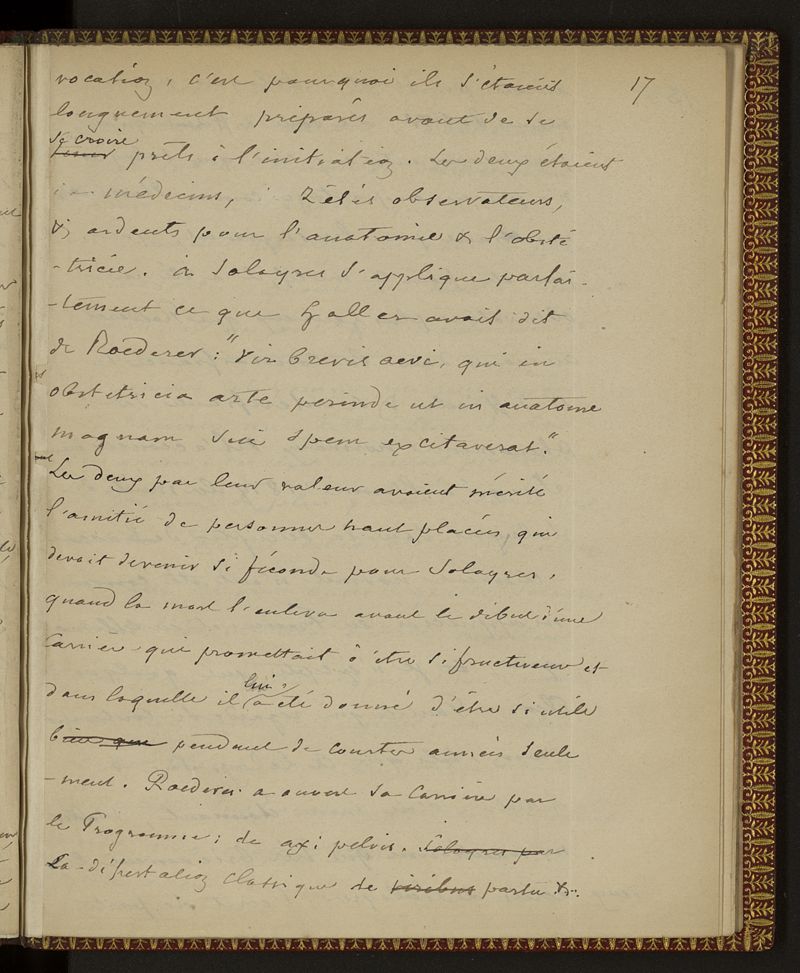 vocation, c'est pourquoi ils s'étaient
17
longuement préparés avant de se
se croire
prêts à l'initiation. Les deux étaient
médecins, zélés observateurs,
& ardents pour l'anatomie & l'obsté
-tricie. à Solayres s'applique parfai-
-tement ce que Haller avait dit
de Roederer: "Vir brevis aevi, qui in
obstetricia arte perinde ut in anatome
magnam sui spem excitaverat."
Les deux par leur valeur avaient mérité
l'amitié de personnes haut placées, qui
devait devenir si féconde pour Solayres,
quand la mort l'enleva avant le début d'une
Carrière qui promettait à être si fructueuse et
lui
dans laquelle il a été donné d'être si utile
bien que pendant de courtes années seule
-ment. Roederer a ouvert sa Carrière par
le Programme: de axi pelvis. Solayres par
La dissertation classique de viribus partu &c.